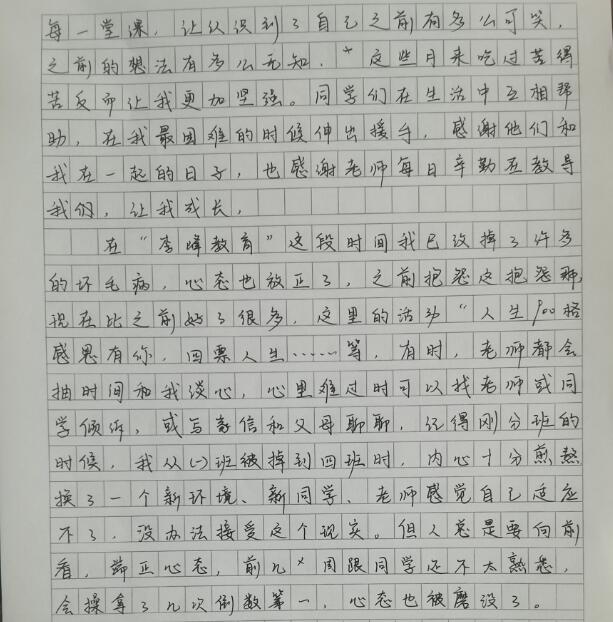 每一堂课，让认识到了自己之前有多么可笑，
之前的想法有多么无知，这些月来吃过苦得
苦反而让我更加坚强。同学们在生活中互相帮
助，在我最困难的时候伸出援手，感谢他们和
我在一起的日子，也感谢老师每日辛勤在教导
我们，让我成长，
在“李峰教育”这段时间我已改掉了许多
的坏毛病，心态也放正了，之前抱怨这抱怨那，
现在比之前好了很多，这里的活动“人生900格
感恩有你，四票人生……等，有时，老师都会
抽时间和我谈心，心里难过时可以找老师或同
学倾诉，或写家信和父母聊聊，记得刚分班的
时候，我从(一)班被掉到四班时，内心十分煎熬
换了一个新环境、新同学、老师感觉自己适应
不了，没办法接受这个现实。但人总是要向前
看，端正心态，前几周跟同学还不太熟悉，
会操拿了几次倒数第一，心态也被磨没了。